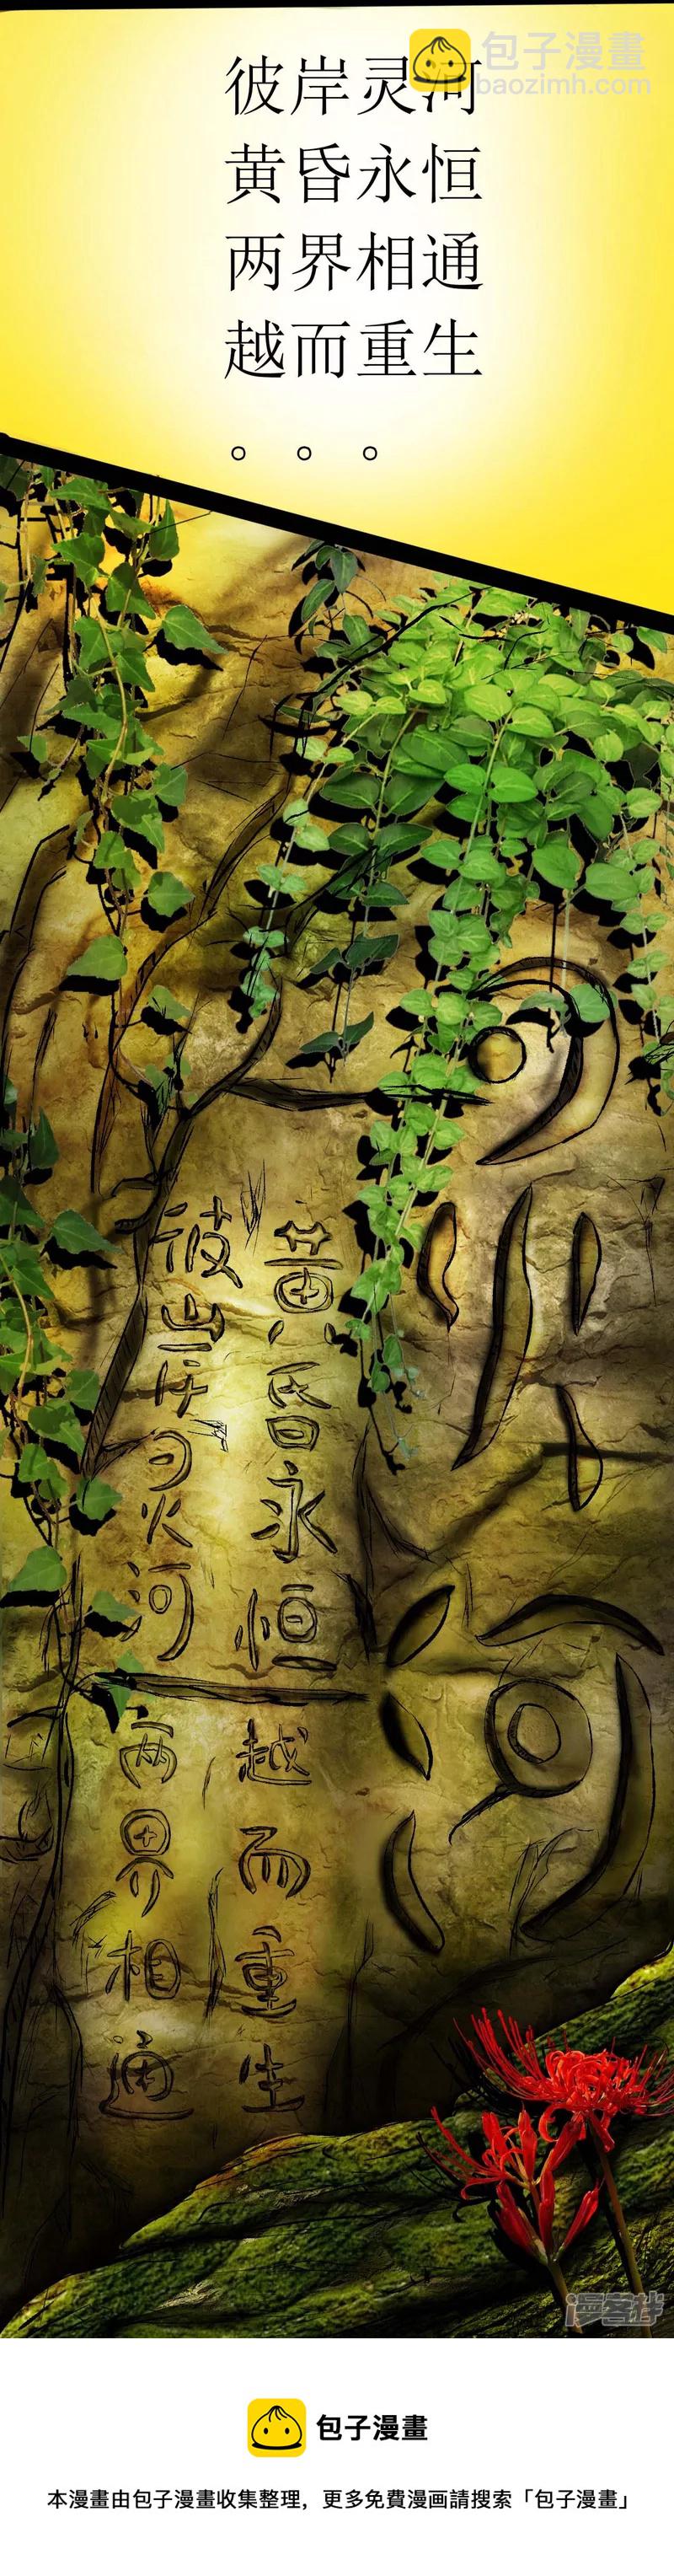 包子漫畫
baozimh.com
彼岸灵河
黄昏永恒
两界相通
越而重生
。。。
彼岸灵河
黄昏永恒
两界相通
越而重生
灵河
漫客栈
包子漫畫
本漫畫由包子漫畫收集整理，更多免費漫画請搜索「包子漫畫」